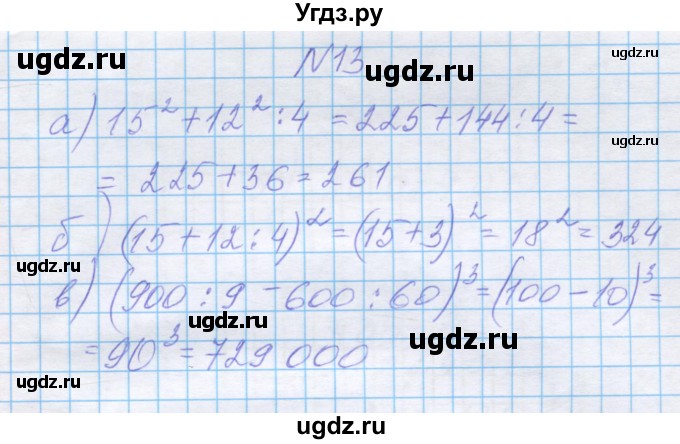 Угдз.ру
ugdz.ru ugdz.ru
№13
ugdz.ru
а) 15² + 12² : 4 = 225 + 144 : 4 =
ugdz.ru ugdz.ru
= 225 + 36 = 261.
б) (15 + 12 : 4)² = (15 + 3)² = 18² = 324
ugdz.ru ugdz.ru
в) (900 : 9 - 600 : 60)³ = (100 - 10)³ =
ugdz.ru
= 90³ = 729 000
ugdz.ru ugdz.ru
ugdz.ru